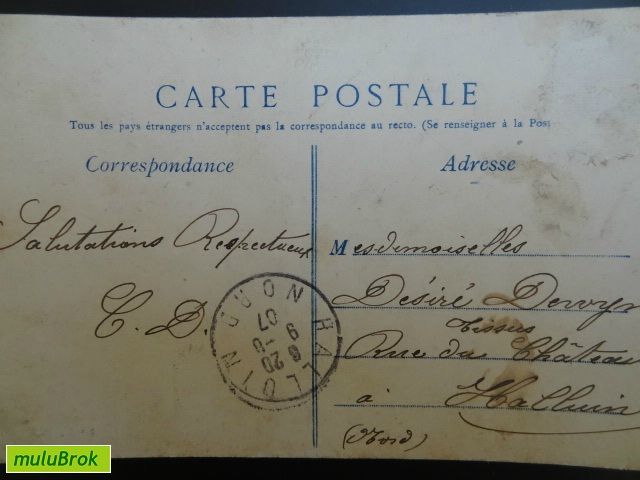 CARTE POSTALE
Tous les pays étrangers n'acceptent pas la correspondance au recto. (Se renseigner à la Post
Correspondance
Adresse
Salutations Respectueux
C. D.
Mesdemoiselles
Désiré
Tissus
Rue du Château
à Halluin
(Nord)
HALLUIN
NORD
6 20
9
07
muluBrok